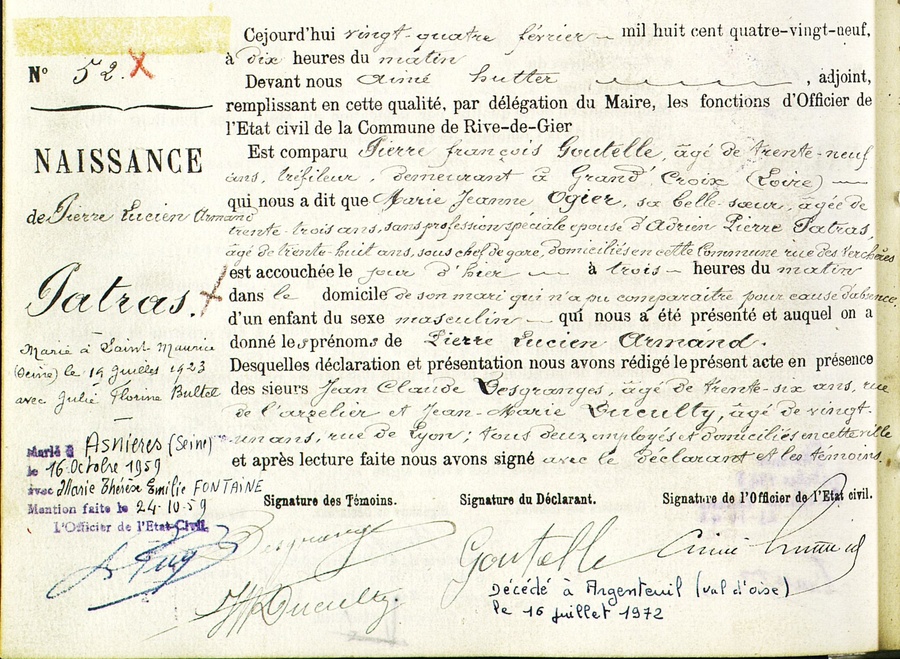 Nº 52. X
NAISSANCE
de Pierre Lucien Armand
Patras. X
Marié à Saint-Maurice
(Seine) le 19 Juillet 1923
avec Julie Florine Bultel
Marié à Asnières (Seine)
le 16 Octobre 1959
avec Marie Thérèse Emilie FONTAINE
Mention faite le 24-10-59
L'Officier de l'Etat-Civil,
Cejourd'hui vingt-quatre février mil huit cent quatre-vingt-neuf,
à dix heures du matin
Devant nous Aimé Hutter, adjoint,
remplissant en cette qualité, par délégation du Maire, les fonctions d'Officier de
l'Etat civil de la Commune de Rive-de-Gier
Est comparu Pierre françois Goutelle, âgé de trente-neuf
ans, tréfileur, demeurant à Grand' Croix (Loire)
qui nous a dit que Marie Jeanne Ogier, sa belle-sœur, âgée de
trente-trois ans, sans profession spéciale épouse d'Adrien Pierre Patras,
âgé de trente-huit ans, sous chef de gare, domiciliés en cette Commune rue des Verchères
est accouchée le jour d'hier à trois heures du matin
dans le domicile de son mari qui n'a pu comparaitre pour cause d'absence,
d'un enfant du sexe masculin qui nous a été présenté et auquel on a
donné les prénoms de Pierre Lucien Armand.
Desquelles déclaration et présentation nous avons rédigé le présent acte en présence
des sieurs Jean Claude Desgranges, âgé de trente-six ans, rue
de l'argelier et Jean-Marie Duculty, âgé de vingt-
un ans, rue de Lyon; tous deux employés et domiciliés en cette ville
et après lecture faite nous avons signé avec le déclarant et les témoins.
Signature des Témoins. Signature du Déclarant. Signature de l'Officier de l'Etat civil.
Desgranges
Goutelle
Duculty
Décédé à Argenteuil (val d'oise)
le 16 juillet 1972